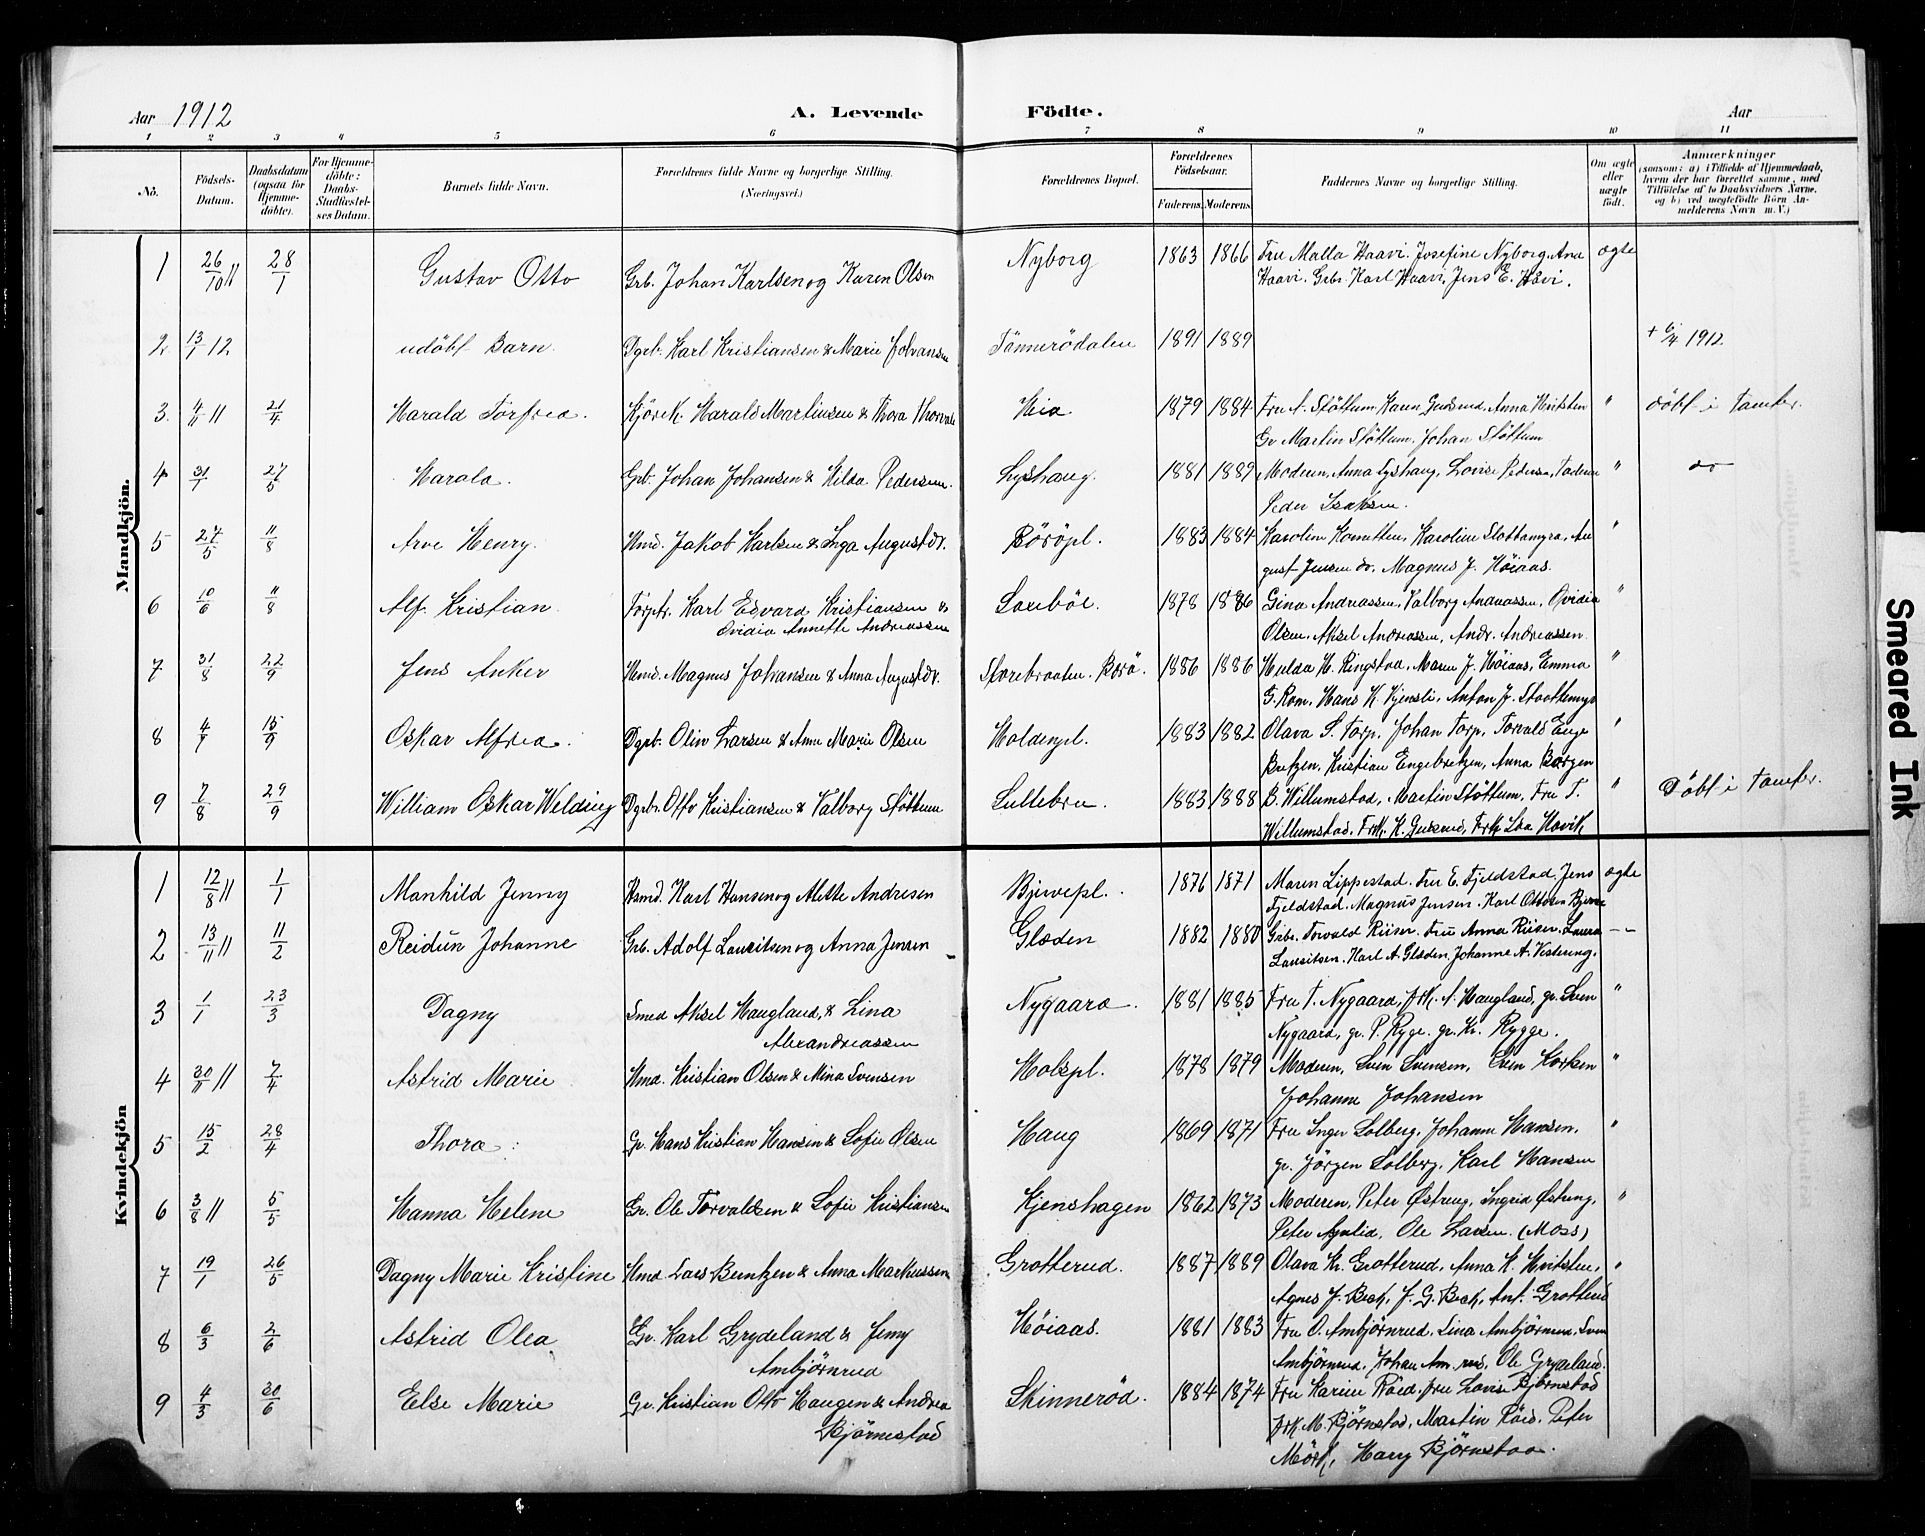 Aar 1912 A. Levende Födte. Aar
1 2 3 4 5 6 7 8 9 10 11
No. Födsels-Datum. Daabsdatum (ogsaa för Hjemmedöbte). For Hjemmedöbte: Daabs-Stadfæstelses Datum. Barnets fulde Navn. Forældrenes fulde Navne og borgerlige Stilling. (Næringsvei.) Forældrenes Bopæl. Forældrenes Födselsaar. Faderens. Moderens. Faddernes Navne og borgerlige Stilling. Om ægte eller uægte födt. Anmærkninger
(saasom: a) i Tilfælde af Hjemmedaab, hvem der har forrettet samme, med Tilföielse af to Daabsvidners Navne, og b) ved uægtefödte Börn Anmelderens Navn m.V.)
Mandkjön.
1 26/10 11 28/1 Gustav Otto Grb. Johan Karlsen og Karen Olsen Nyborg 1863 1866 Fru Malla Haavi. Josefine Nyborg. Ana ægte
Haavi. Grbr. Karl Haavi, Jens E. Håvi.
2. 13/1 12 udöbt Barn. Dgrb. Karl Kristiansen & Marie Johansen Tönnerödalen 1891 1889 + 6/4 1912
3. 4/11 11 21/4 Harald Torfred. Kjörek. Harald Martinsen & Thora Thorvals Hia 1879 1884 Fru A. Stöttum Karen Gudsrud, Anna Hvitsten " döbt i Tomter.
Gr Martin Stöttum. Johan Stöttum
4 31/1 27/5 Harald. Grb. Johan Johansen & Hilda Pedersen. Lyshaug. 1881 1889 Moderen, Anna Lyshaug, Lovise Pedersen, Faderen " do
Peder Isaksen.
5 27/5 11/8 Arve Henry. Hmd. Jakob Karlsen & Inga Augustdr. Böröpl. 1883 1884 Karoline Kornetten, Karoline Slottamyra, Au "
gust Jensen do, Magnus J. Höiaas.
6 10/6 11/8 Alf Kristian Torpar. Karl Edvard Kristiansen & Saxeböl. 1878 1886 Gina Andreassen, Valborg Andreassen, Ovidia "
Ovidia Annette Andreassen Olsen, Aksel Andreassen, Andr. Andreassen
7 31/8 22/9 Jens Anker Hmd. Magnus Johansen & Anna Augustdr. Storebraaten. Börö. 1886 1886 Hulda H. Ringstad, Maren J. Höiaas, Emma "
G. Rom. Hans K. Kjensli, Anton J. Slaattemyr
8 4/7 15/9 Oskar Alfred. Dgrb. Oliv Larsen & Anne Marie Olsen Holdenpl. 1883 1882 Olava S. Torp, Johan Torp, Torvald Enge "
Bretzen, Kristian Engebretzen, Anna Borgen
9 7/8 29/9 William Oskar Welding Dgrb. Otto Kristiansen & Valborg Stöttum Lullebru. 1883 1888 B. Willumstad, Martin Stöttum, Fru T. " Döbt i Tomter.
Willumstad, Frk. K. Gudsrud, Frk Lea Hovik
Kvindekjön
1 12/8 11 1/1 Manhild Jenny Hsmd. Karl Hansen og Alette Andresen Bjervepl. 1876 1871 Maren Lippestad. Fru E. Fjeldstad. Jens ægte
Fjeldstad. Magnus Jensen. Karl Ottesen Bjerve
2 13/11 11 11/2 Reidun Johanne Grb. Adolf Lauritsen og Anna Jensen Glæden 1882 1880 Grbr. Torvald Riiser. Fru Anna Riiser. Laura -"-
Lauritsen. Karl A. Glæden. Johanne A. Vestereng.
3 1/1 23/3 Dagny Smed Aksel Haugland, & Lina Nygaard. 1881 1885 Fru T. Nygaard, frk. A. Haugland, gr. Sven "
Alexandreassen Nygaard, gr. P. Rygge. gr. Kr. Rygge.
4 30/11 11 7/4 Astrid Marie Hmd. Kristian Olsen & Mina Svensen Holspl. 1878 1879 Moderen, Sven Svensen, Even Karlsen "
Johanne Johansen
5 15/2 28/4 Thora. Gr. Hans Kristian Hansen & Sofie Olsen Haug 1869 1871 Fru Inger Solberg, Johanne Hansen, "
gr. Jörgen Solberg, Karl Hansen
6 3/8 11 5/5 Hanna Helene Gr. Ole Torvaldsen & Sofie Kristiansen Kjenshagen 1862 1873 Moderen, Peter Østreng, Ingrid Østreng, "
Peter Apalid, Ole Larsen. (Moss)
7 19/1 26/5 Dagny Marie Kristine Hmd Lars Berntzen & Anna Markussen Grotterud. 1887 1889 Olava Kr. Grotterud, Anna K. Hvitsten, "
Agnes J. Bek, J. G. Bek, Ant. Grotterud
8 6/3 2/6 Astrid Olea. Gr. Karl Grydeland & Jenny Höiaas. 1881 1883 Fru O. Ambjörnrud, Lina Ambjörnrud, Sven
Ambjörnrud Ambjörnrud, Johan Am.rud, Ole Grydeland.
9 4/3 30/6 Else Marie Gr. Kristian Otto Haugen & Andrea Skinneröd. 1884 1874 Fru Karine Röed, fru Lovise Björnstad
Björnestad frk M. Björnstad, Martin Röed, Peter
Mörk, Hary Björnstad.
Smeared Ink